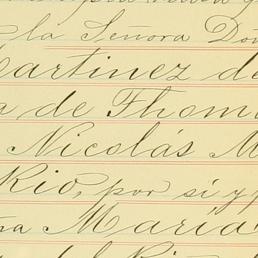 la Señora Don
Martinez de
a de Thom
Nicolás M
Rio, por sí y p
sa María